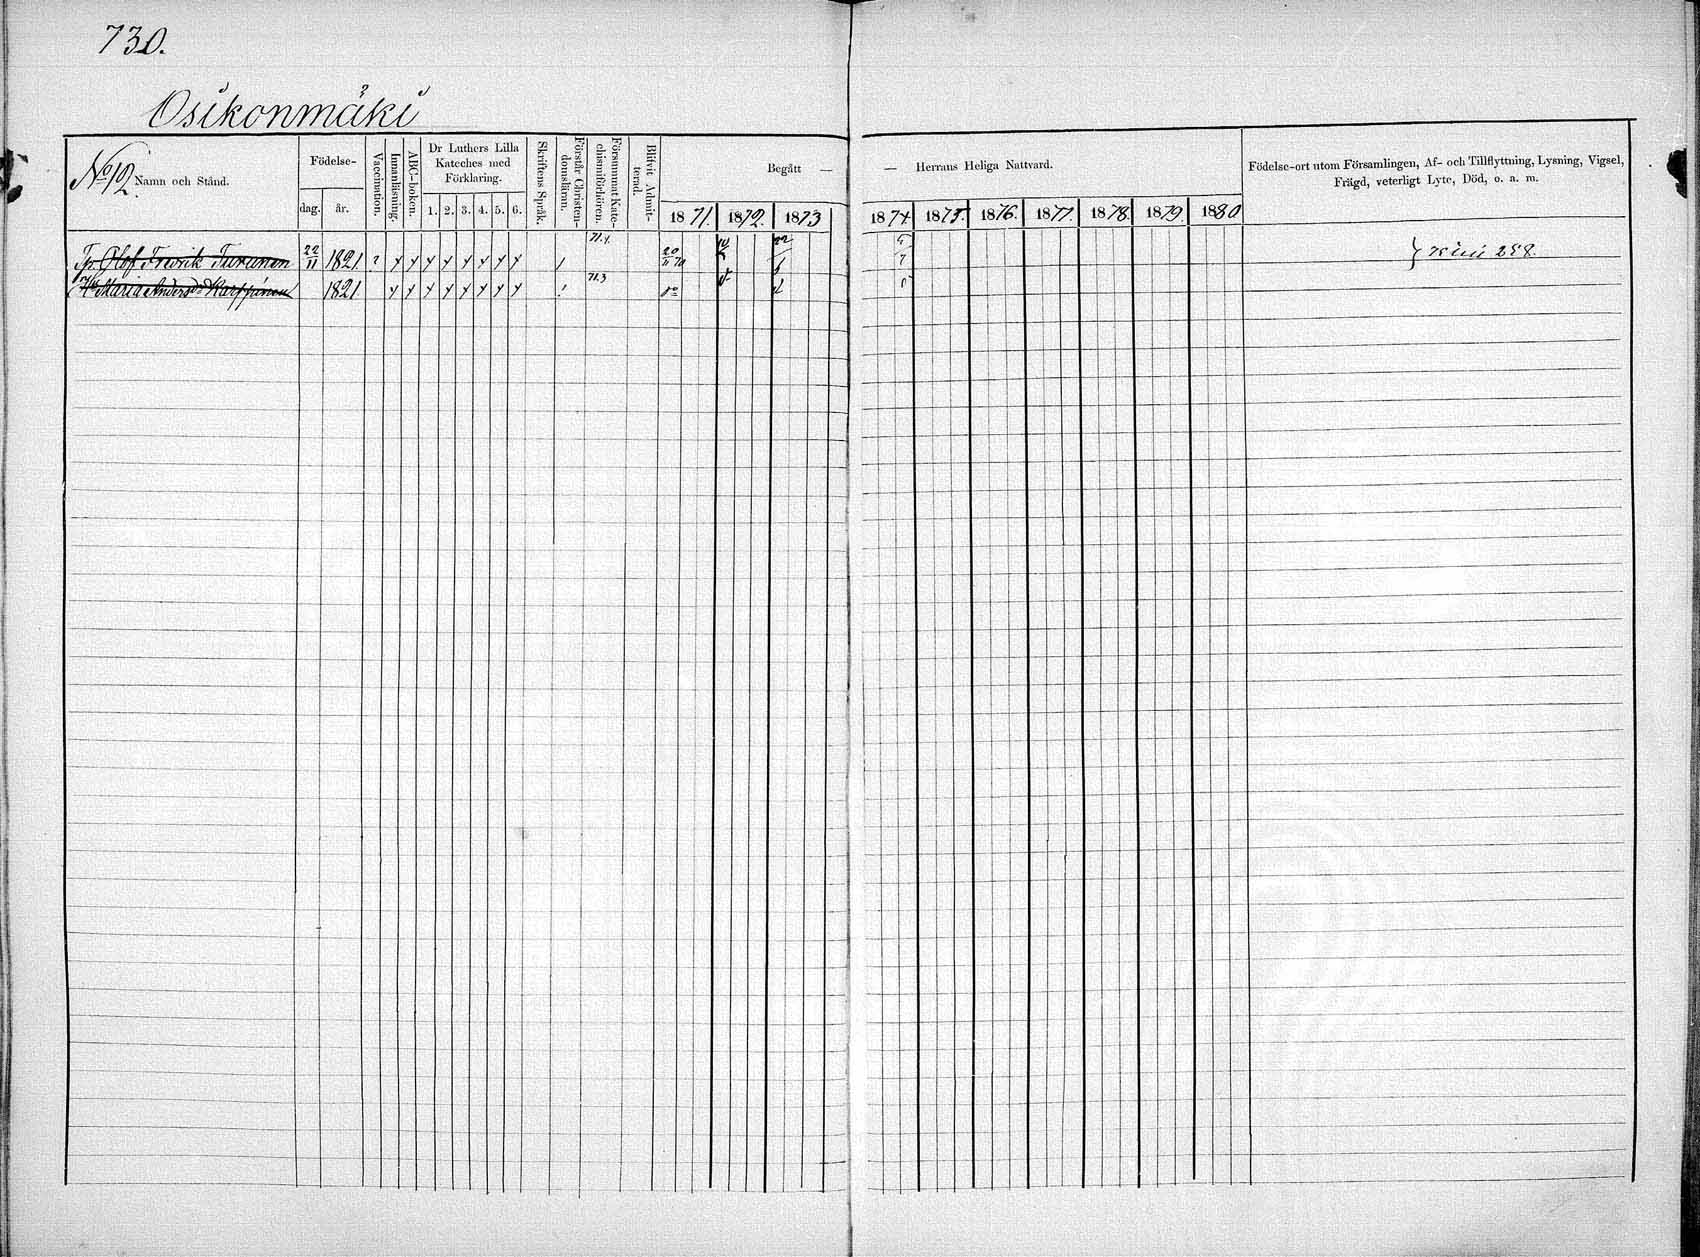 730.
Osikonmäki
No 12. Namn och Stånd.
Födelse-
dag.
år.
Vaccination.
Innanläsning.
ABC-boken.
Dr Luthers Lilla
Kateches med
Förklaring.
1. 2. 3. 4. 5. 6.
Skriftens Språk.
Förstår Christen-
domsläran.
Försummat Kate-
chismiförhören.
Blifvit Admit-
terad.
Begått —
1871. 1872. 1873
— Herrans Heliga Nattvard.
1874. 1875. 1876. 1877. 1878. 1879. 1880
Födelse-ort utom Församlingen, Af- och Tillflyttning, Lysning, Vigsel,
Frägd, veterligt Lyte, Död, o. a. m.
Olof Fredrik Turunen 22/11 1821. ? 71.4.
Maria Andersd. Karppinen 1821 71.3
258.